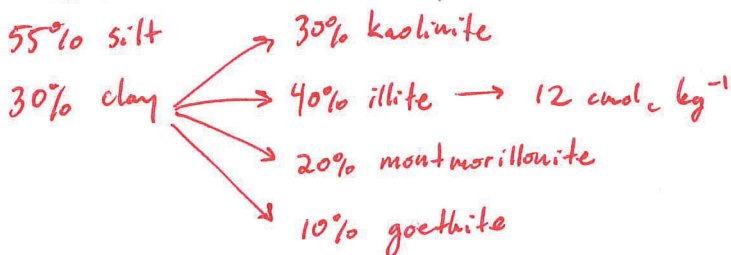 55% silt → 30% kaolinite
30% clay → 40% illite → 12 cmol_c kg⁻¹
→ 20% montmorillonite
→ 10% goethite